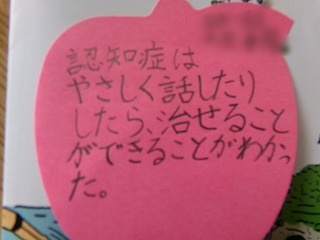 認知症は
やさしく話したり
したら、治せること
ができることがわかっ
た。